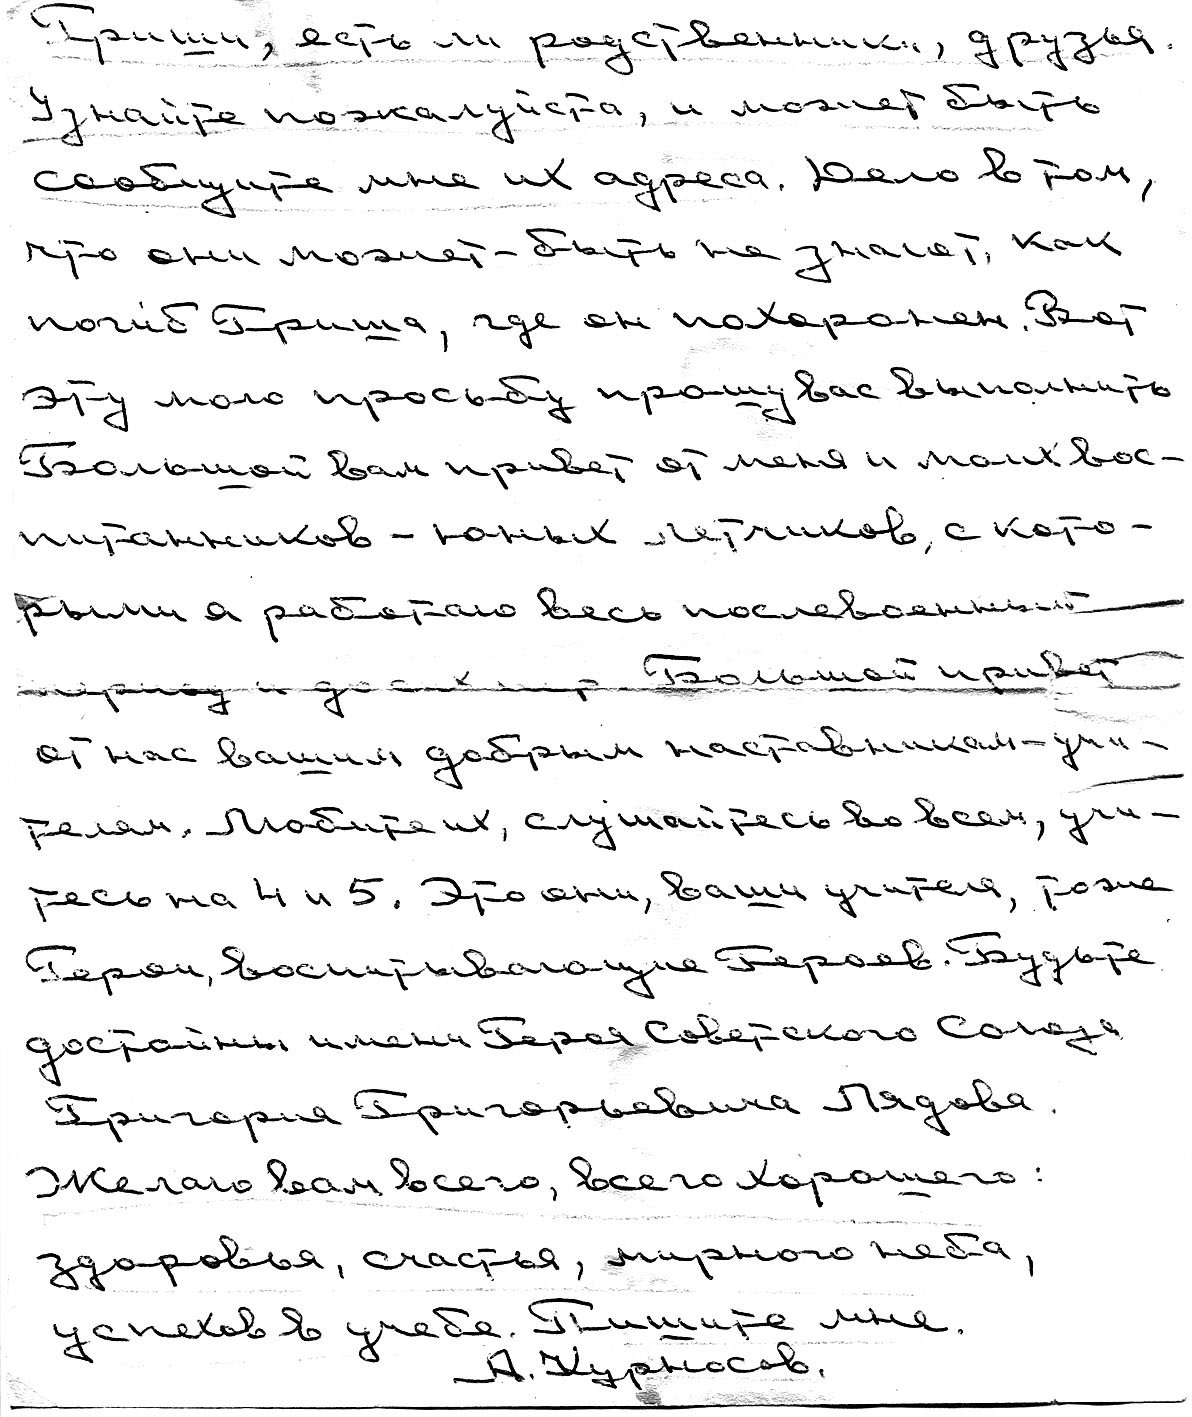 Гриши, есть ли родственники, друзья.
Узнайте пожалуйста, и может быть
сообщите мне их адреса. Дело в том,
что они может-быть не знают, как
погиб Гриша, где он похоронен. Вот
эту мою просьбу прошу вас выполнить
Большой вам привет от меня и моих вос-
питанников - юных летчиков, с кото-
рыми я работаю весь послевоенный
период и до сих пор. Большой привет
от нас вашим добрым наставникам-учи-
телям. Любите их, слушайтесь во всем, учи-
тесь на 4 и 5. Это они, ваши учителя, тоже
Герои, воспитывающие Героев. Будьте
достойны имени Героя Советского Союза
Григория Григорьевича Лядова.
Желаю вам всего, всего хорошего:
здоровья, счастья, мирного неба,
успехов в учебе. Пишите мне.
А. Курносов.